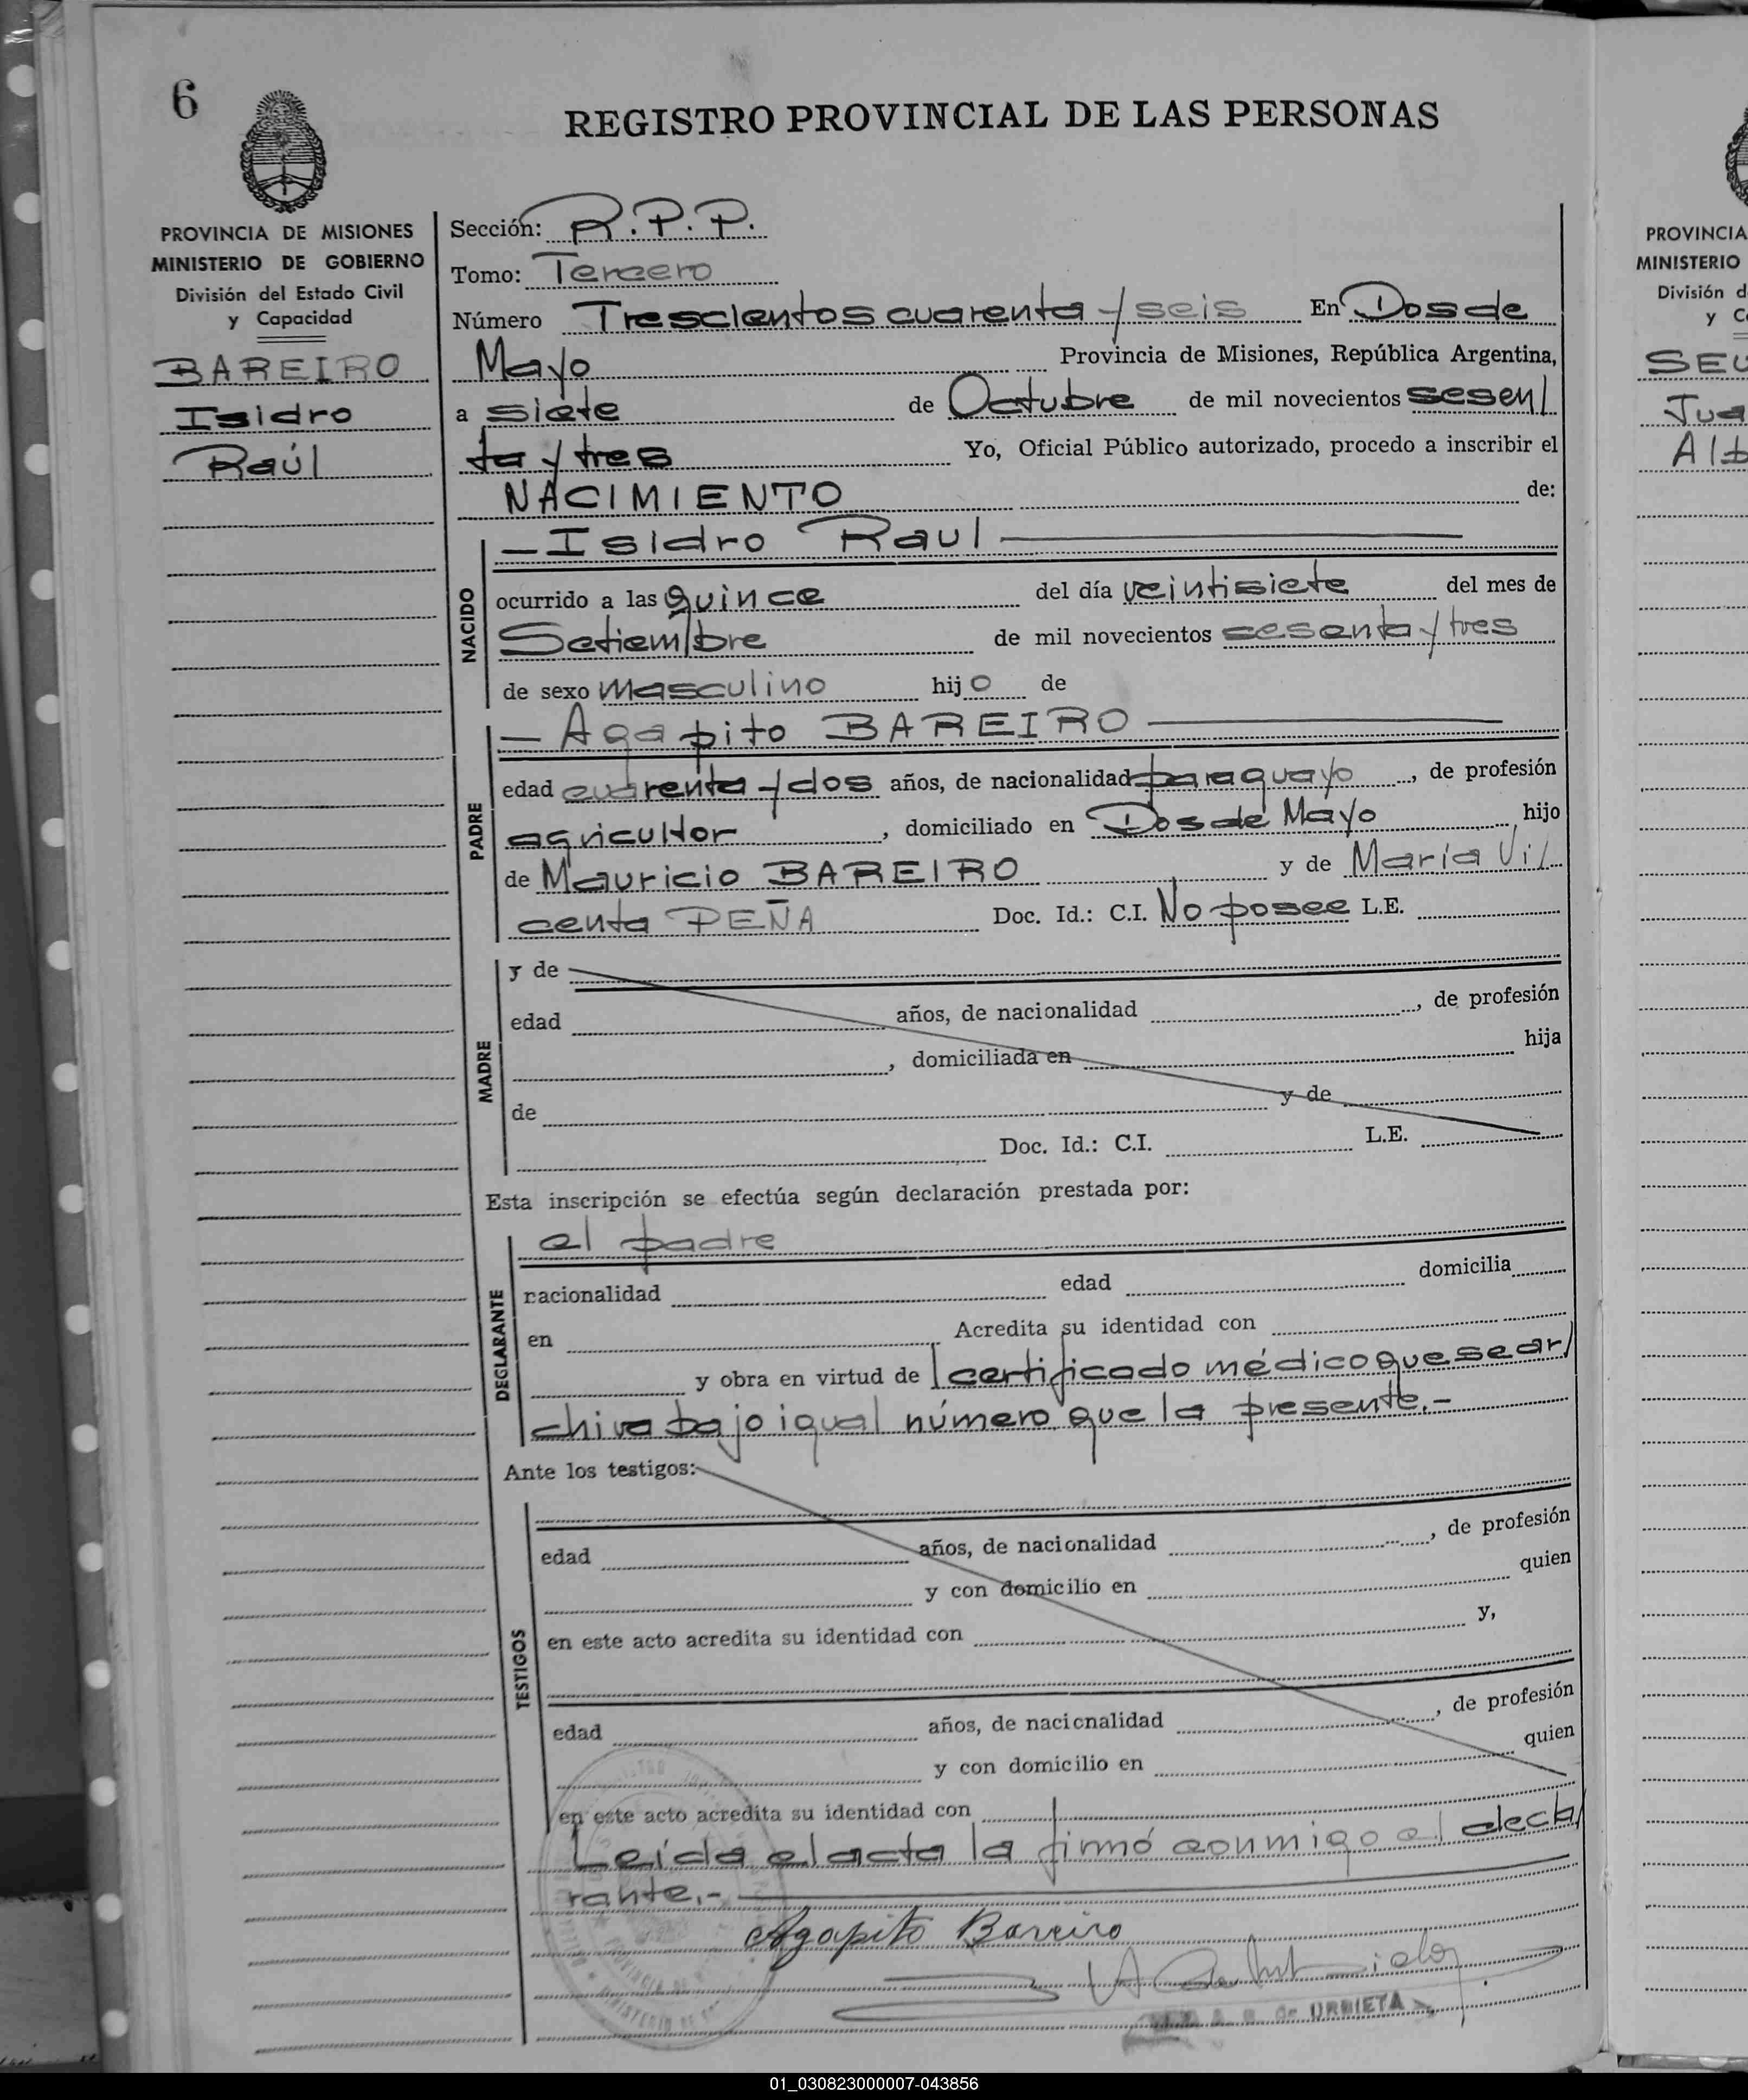 6
REGISTRO PROVINCIAL DE LAS PERSONAS
PROVINCIA DE MISIONES
MINISTERIO DE GOBIERNO
División del Estado Civil
y Capacidad
BAREIRO
Isidro
Raúl
Sección: R.P.P.
Tomo: Tercero
Número Trescientos cuarenta y seis En Dos de
Mayo Provincia de Misiones, República Argentina,
a siete de Octubre de mil novecientos sesen/
ta y tres Yo, Oficial Público autorizado, procedo a inscribir el
NACIMIENTO de:
NACIDO
— Isidro Raul —
ocurrido a las quince del día veintisiete del mes de
Setiembre de mil novecientos sesenta y tres
de sexo masculino hijo de
PADRE
— Agapito BAREIRO —
edad cuarenta y dos años, de nacionalidad paraguayo, de profesión
agricultor, domiciliado en Dos de Mayo hijo
de Mauricio BAREIRO y de María Vi/
centa PEÑA Doc. Id.: C.I. No posee L.E.
MADRE
y de
edad años, de nacionalidad, de profesión
, domiciliada en hija
de y de
Doc. Id.: C.I. L.E.
Esta inscripción se efectúa según declaración prestada por:
DECLARANTE
el padre
nacionalidad edad domicilia
en Acredita su identidad con
y obra en virtud de certificado médico que se ar/
chiva bajo igual número que la presente.-
Ante los testigos:
TESTIGOS
edad años, de nacionalidad, de profesión
y con domicilio en quien
en este acto acredita su identidad con y,
edad años, de nacionalidad, de profesión
y con domicilio en quien
en este acto acredita su identidad con
Leída el acta la firmó conmigo el decla/
rante.-
Agapito Bareiro
de URBIETA
PROVINCIA
MINISTERIO
División d
y C
SEU
Jua
Alb
01_030823000007-043856